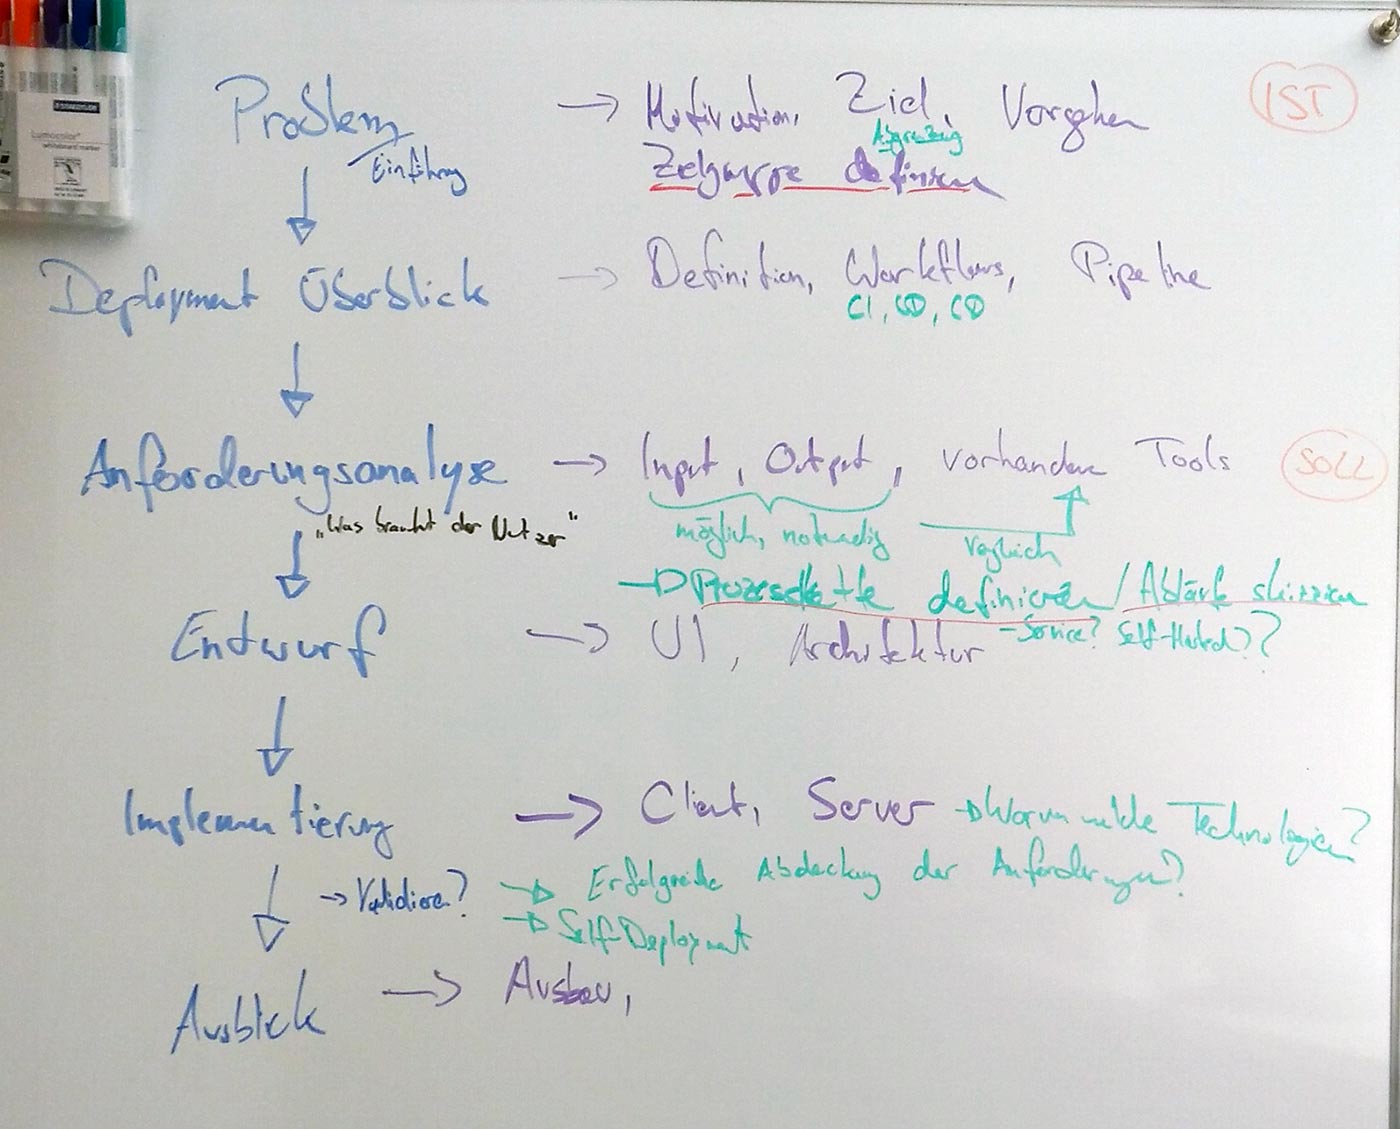 STAEDTLER
Lumocolor
whiteboard marker
Problem → Motivation, Ziel, Vorgehen IST
Einführung Abgrenzung
Zielgruppe definieren
Deployment Überblick → Definition, Workflows, Pipeline
CI, CD, CD
Anforderungsanalyse → Input, Output, vorhandene Tools SOLL
„Was braucht der Nutzer“ möglich, notwendig Vergleich
→ Prozesskette definieren / Abläufe skizzieren
Entwurf → UI, Architektur - Service? Self-Hosted??
Implementierung → Client, Server → Warum welche Technologien?
→ Validieren? → Erfolgreiche Abdeckung der Anforderungen?
→ Self-Deployment
Ausblick → Ausbau,